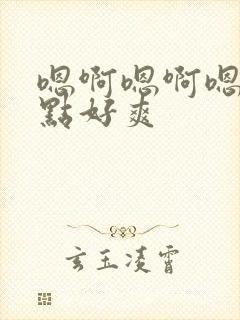 嗯啊嗯啊嗯
點好爽
玄玉凌霄